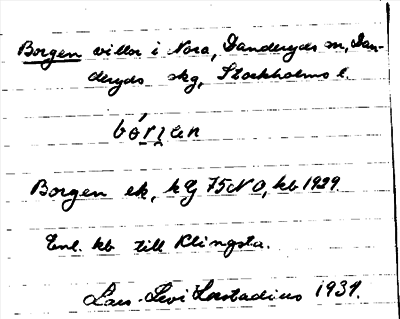 Borgen villor i Nora, Danderyds sn, Dan-
deryds skg, Stockholms l.
bórjen
Borgen ek, kG 75NO, kb 1929.
Enl. kb till Klingsta.
Lars-Levi Læstadius 1934.